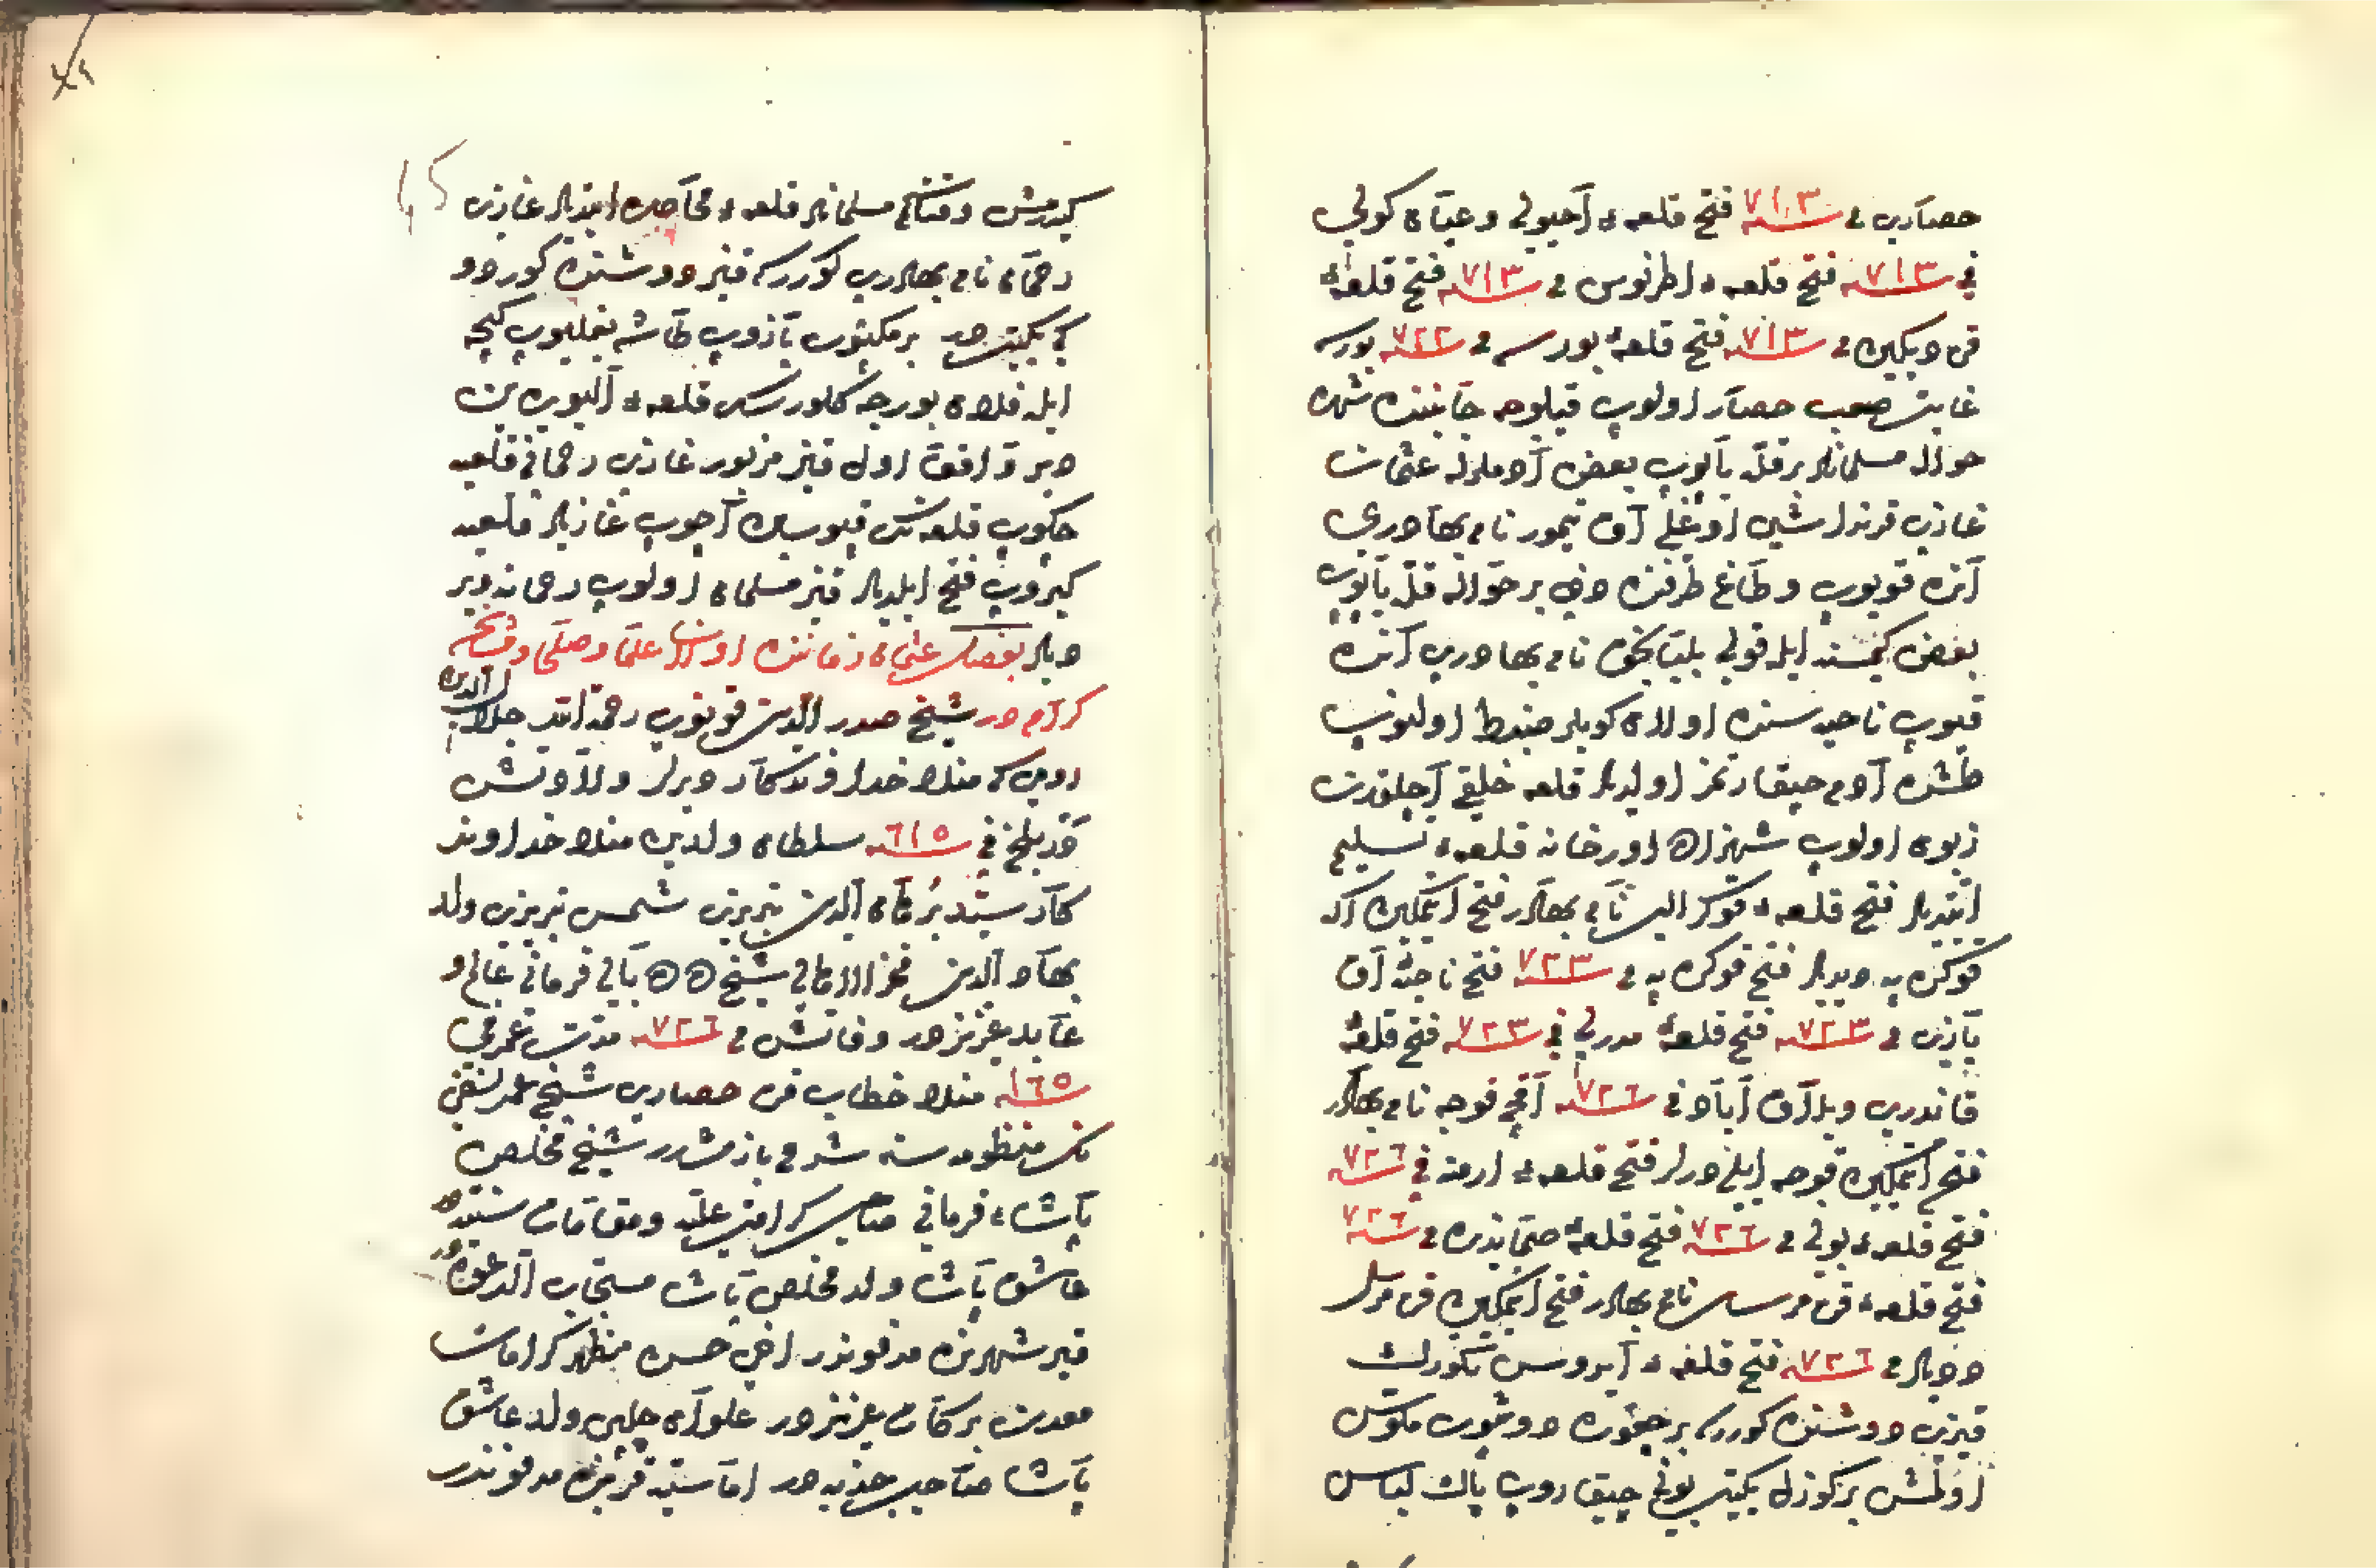 حصاری فی سنه ٧١٣ فتح قلعهٔ آجیولی و عیان کولی
فی سنه ٧١٣ فتح قلعهٔ اطرنوس فی سنه ٧١٣ فتح قلعهٔ
فی سنه ٧١٣ فتح قلعهٔ بورسه فی سنه ٧٢٢ بورسه
غایت صعب حصار اولوب قپلوجه جانبنده شهره
حواله مسلمانلر بر قله یاپوب بعض آدملرله عثمان
غازی قرنداشی اوغلی آق تیمور نام بهادری
آنده قویوب و طاغ طرفنده دخی بر حواله قله یاپوب
بعض کیمسنه ایله قولی بلبانجق نام بهادری آنده
قیوب ناحیه سنده اولان کویلر ضبط اولنوب
طشره آدم چیقارتمز اولدیلر قلعه خلقی آچلقدن
زبون اولوب شهزاده اورخانه قلعهٔ تسلیم
ایتدیلر فتح قلعهٔ قوکر الپ نام بهادر فتح ایتمکین اکا
قوکره په دیدیلر فتح قوکره په فی سنه ٧٢٣ فتح ناحیهٔ آق
یازی فی سنه ٧٢٣ فتح قلعهٔ مدرلی فی سنه ٧٢٣ فتح قلعهٔ
قاندری و بلاق آباد فی سنه ٧٢٦ آقچه قوجه نام بهادر
فتح ایتمکین قوجه ایلی درلر فتح قلعهٔ ارمنه فی سنه ٧٢٦
فتح قلعهٔ بولی فی سنه ٧٢٦ فتح قلعهٔ صمانذره فی سنه ٧٢٦
فتح قلعهٔ قره مرسل نام بهادر فتح ایتمکین قره مرسل
دیدیلر فی سنه ٧٢٦ فتح قلعهٔ آیدوس تکورک
قیزی دوشنده کوررکه بر چقوره دوشوب
اولمش بر کوزل یکیت بونی چیقاروب پاک لباس
کیدرمش وقتاکه مسلمانلر قلعهٔ محاصره ایتدیلر غازی
رحمان نام بهادری کوررکه قیز دوشنده کوردو
کی یکیتدر بر مکتوب یازوب طاشه بغلیوب کیجه
ایله فلان بورجه کلورسک قلعهٔ آلیوره ین
دیر اول قیز مزبور غازی رحمانی قلعه
چکوب قلعه نک قپوسین آچوب غازیلر قلعه
کیروب فتح ایلدیلر قیز مسلمان اولوب رحمانه ویر
دیلر بو فصل عثمان زماننده اولان علما و صلحا و مشایخ
کرام در شیخ صدر الدین قونوی رحمه الله جلال الدین
رومی که منلا خداوندکار دیرلر ولادتش
قدیلخ فی سنه ٦١٥ سلطان ولد بن منلا خداوند
کار سید برهان الدین تبریزی شمس تبریزی ولد
بهاء الدین شیخ ده ده بالی قرمانی عالم و
عابد عزیزدر وفاتش فی سنه ٧٢٦ مدت عمرش
١٦٥ منلا خطاب قره حصاری شیخ عمر نسفی
نک منظومه سنه شرح یازمشدر شیخ مخلص
پاشاء قرمانی صاحب کرامت علیه و مقامات سنیه در
عاشق پاشا ولد مخلص پاشا مستجاب الدعوه در
قیر شهرنده مدفوندر اخی حسن مظهر کرامات
معدن برکات عزیزدر علوان چلبی ولد عاشق
پاشا صاحب جذبه در اماسیه قربنده مدفوندر